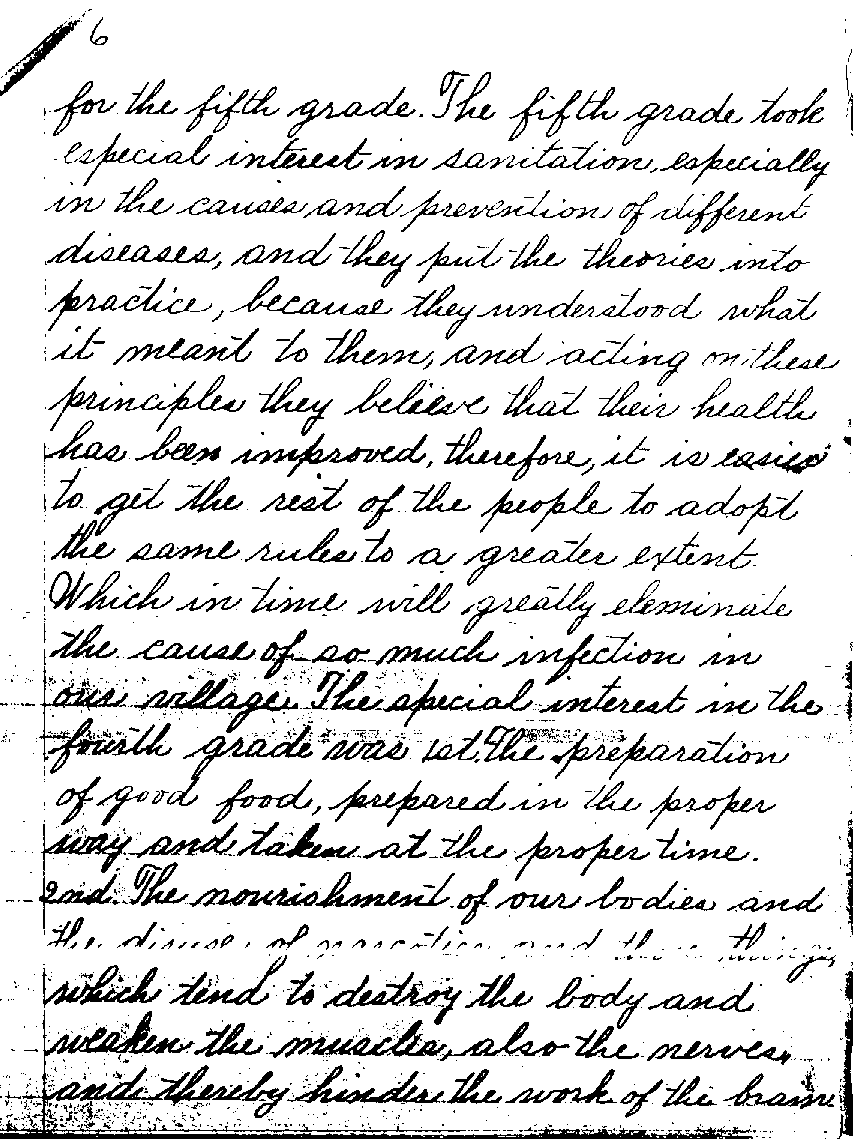 6
for the fifth grade. The fifth grade took
especial interest in sanitation, especially
in the causes and prevention of different
diseases, and they put the theories into
practice, because they understood what
it meant to them, and acting on these
principles they believe that their health
has been improved, therefore, it is easier
to get the rest of the people to adopt
the same rules to a greater extent
Which in time will greatly eleminate
the cause of so much infection in
our village. The special interest in the
fourth grade was 1st. The preparation
of good food, prepared in the proper
way and taken at the proper time.
2nd. The nourishment of our bodies and
the disuse of narcotics and those things
which tend to destroy the body and
weaken the muscles, also the nerves,
and thereby hinder the work of the brain